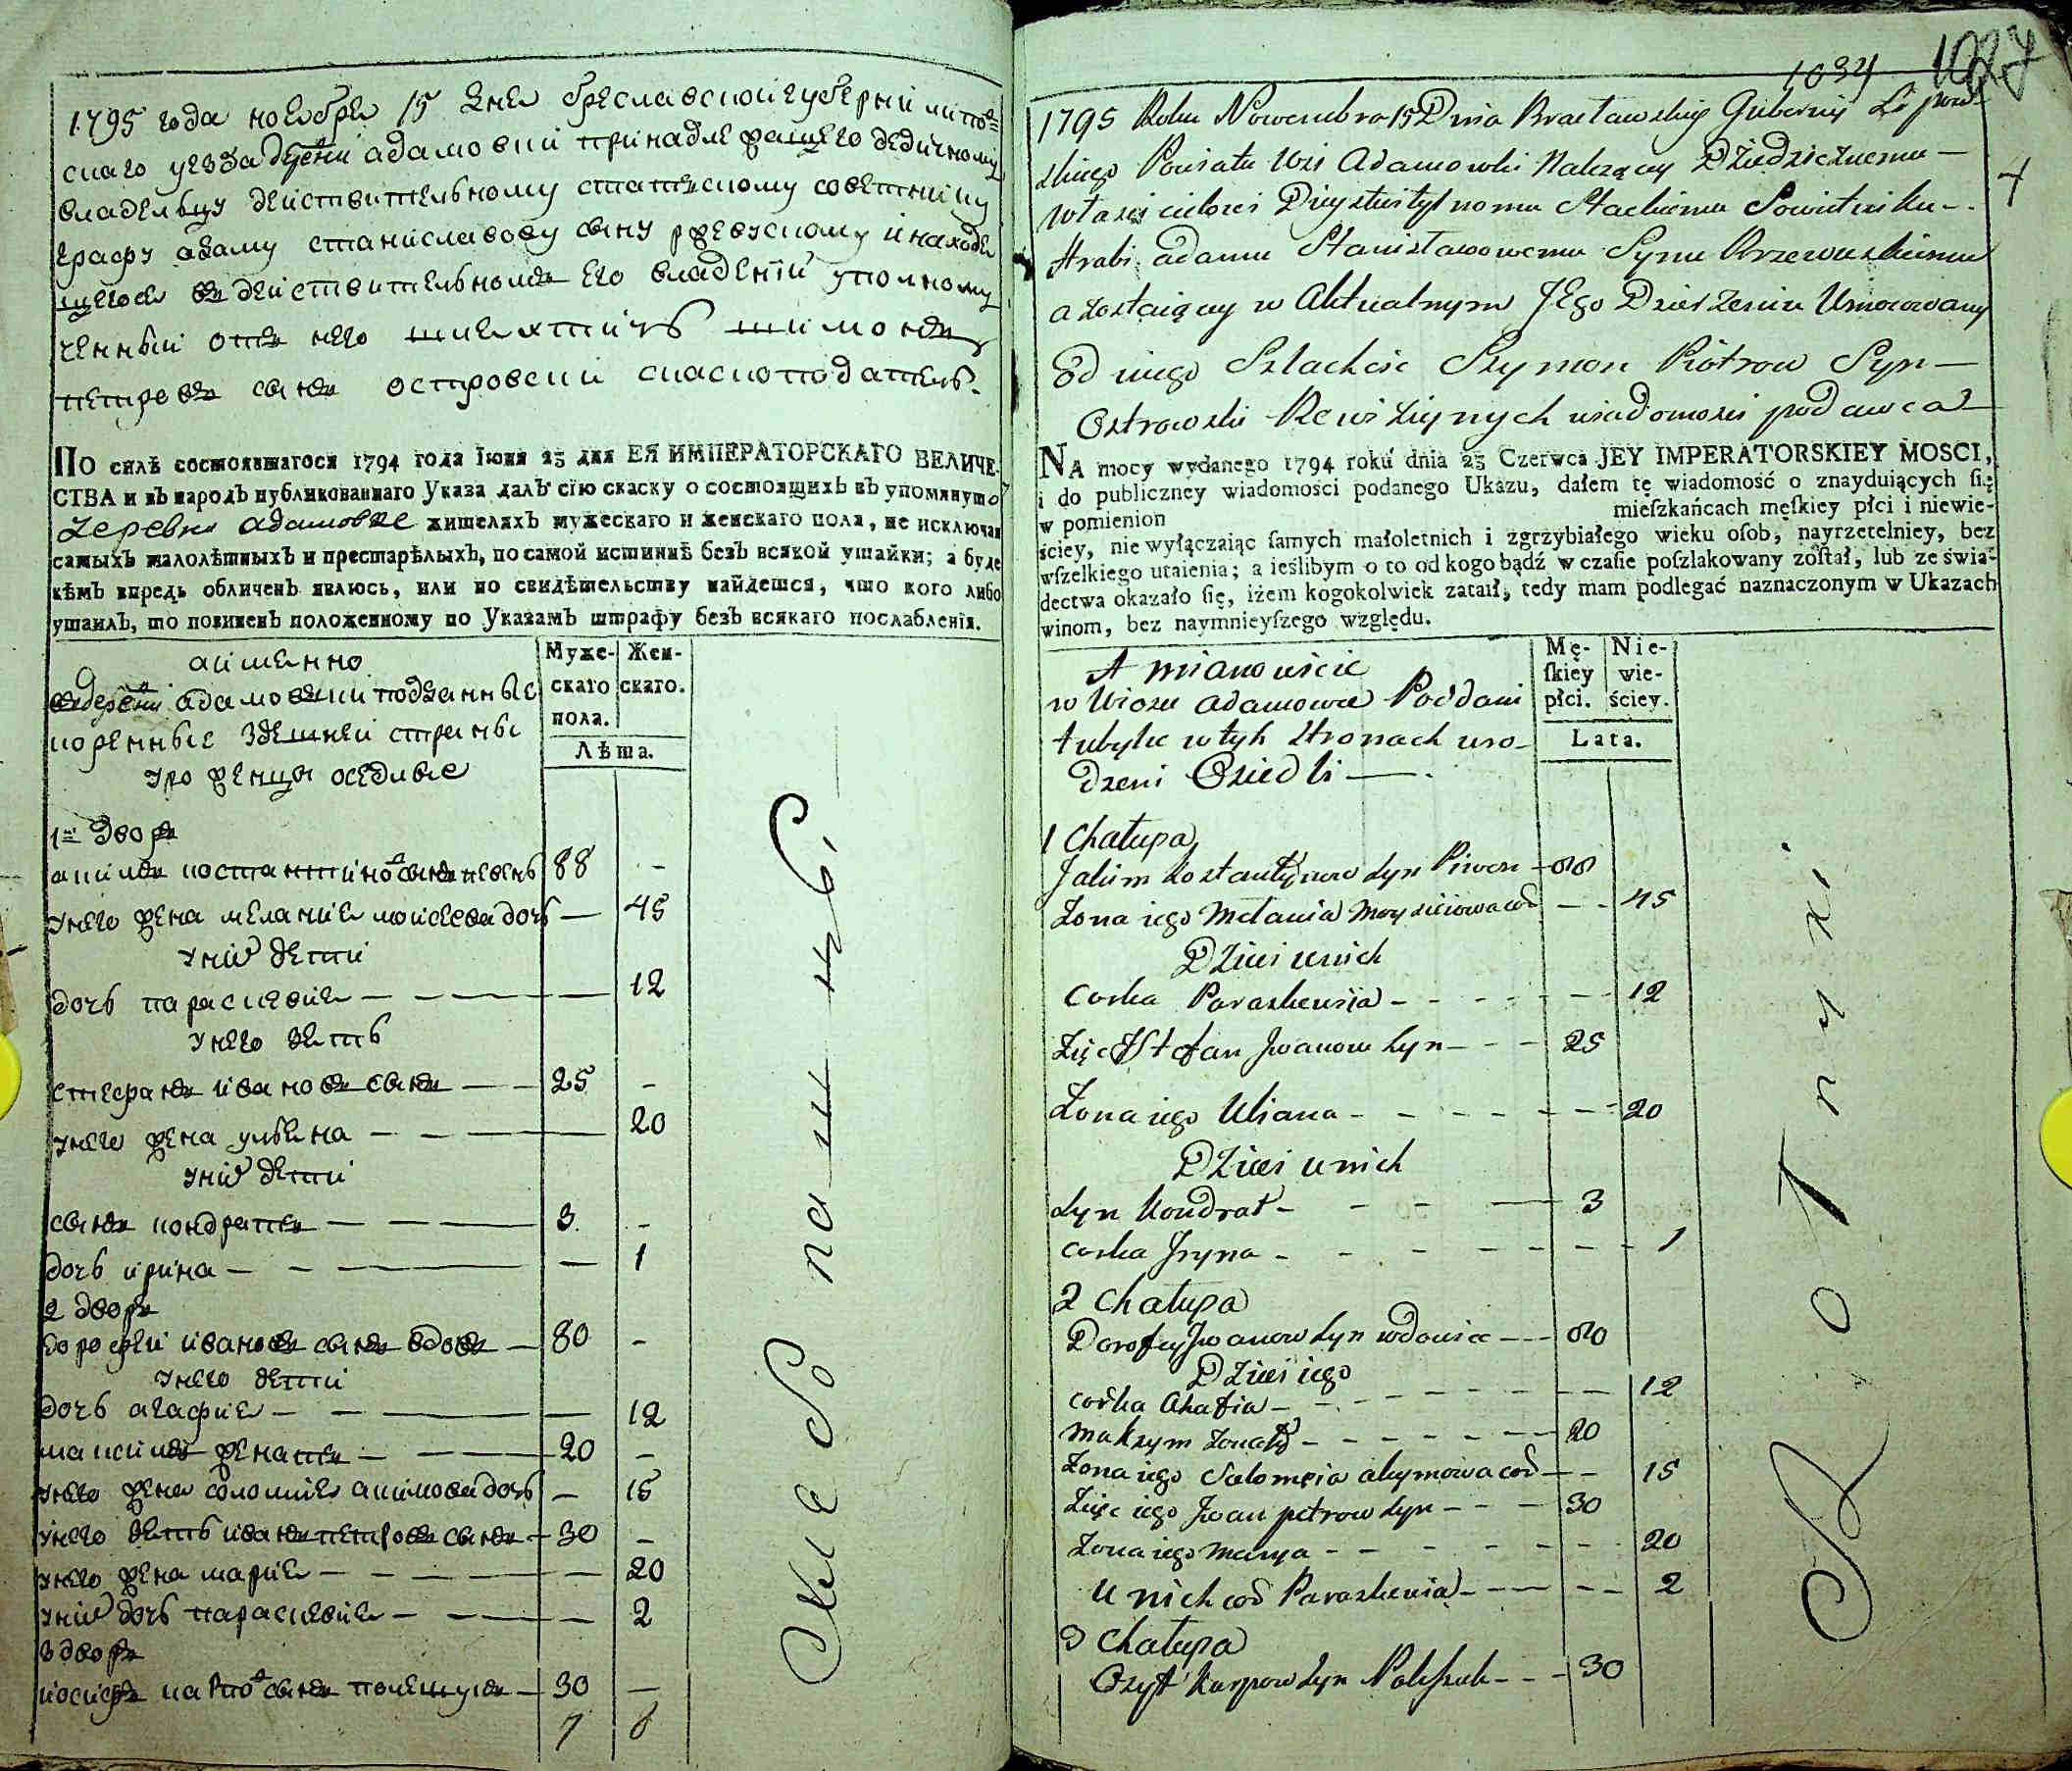 1795 года ноебре 15 дне бреславской губерниі липов=
скаго уезда дрвни адамовки принадлежащего дедичному
владельцу действительному статскому советнику
графу адаму станиславову сыну ржевускому и находе
щегосе въ действительномъ его владениі уполномо
ченный отъ него шлехтичъ шимонъ
петровъ сынъ островски скаскоподатель.
По силѣ состоявшагося 1794 года Іюня 23 дня ЕЯ ИМПЕРАТОРСКАГО ВЕЛИЧЕ-
СТВА и въ народъ публикованнаго Указа далъ сію скаску о состоящихъ въ упомянуто
деревни адамовке жителяхъ мужескаго и женскаго пола, не исключая
самыхъ малолѣтныхъ и престарѣлыхъ, по самой истиннѣ безъ всякой утайки; а буде
кѣмъ впредь обличенъ явлюсь, или по свидѣтельству найдется, что кого либо
утаилъ, то повиненъ положенному по Указамъ штрафу безъ всякаго послабленія.
аименно
Муже- Жен-
скаго скаго.
пола.
Лѣта.
въ деревни адамовки подданные
коренные здешней страны
уроженцы оседлые
1й дворъ
акимъ костантиновъ сынъ пивень 88 -
унего жена мелание моисеева дочь — 45
уних дети
дочь параскевие — 12
унего зеть
стефанъ ивановъ сынъ — 25 -
унего жена улиена — 20
уних дети
сынъ кондратъ — 3 -
дочь ирина — 1
2 дворъ
дорофей ивановъ сынъ вдовъ — 80 -
унего дети
дочь агафие — 12
максимъ женатъ — 20 -
унего жена соломие акимова дочь — 15
унего зеть иванъ петровъ сынъ — 30 -
унего жена марие — 20
уних дочь параскевие — 2
3 дворъ
иосифъ карповъ сынъ полешукъ — 30 —
7 6
1034 1027
1795 Roku Nowembra 15 Dnia Bracławskiy Gubernij Lipow-
skiego Powiatu Wsi Adamowki Należący Dziedzicznemu —
Właścicielowi Dieystwitylnomu Stackiemu Sowietniku -
Hrabi adamu Stanisławowemu Synu Rzewuskiemu
a zostaiącey w Aktualnym JEgo Dzierżeniu Umocowany
Od niego Szlachcic Szymon Piotrow Syn —
Ostrowski Rewizijnych wiadomości podawca —
NA mocy wydanego 1794 roku dnia 23 Czerwca JEY IMPERATORSKIEY MOSCI,
i do publiczney wiadomości podanego Ukazu, dałem tę wiadomość o znayduiących ſię
w pomienion mieſzkańcach męſkiey płci i niewie-
ściey, nie wyłączaiąc ſamych małoletnich i zgrzybiałego wieku oſob, nayrzetelniey, bez
wſzelkiego utaienia; a ieślibym o to od kogo bądź w czaſie poſzlakowany zoſtał, lub ze świa-
dectwa okazało ſię, iżem kogokolwiek zataił, tedy mam podlegać naznaczonym w Ukazach
winom, bez naymnieyſzego względu.
A mianowicie
Mę- Nie-
ſkiey wie-
płci. ściey.
Lata.
w Wiosce adamowce Poddani
tubylce w tych stronach uro-
dzeni Osiedli —.
1 Chałupa
Jakim Kostantynow syn Piwen — 88
Zona iego Melania Moysiiowa cor — - 45
Dzieci unich
Corka Paraskewija - - - 12
Zięć Stefan Jwanow syn - - - 25
Zona iego Uliana - - - 20
Dzieci unich
syn Kondrat - - — 3
corka Jryna - - - 1
2 Chałupa
Dorofey Jwanow syn wdowiec - - - 80
Dzieci iego
corka Ahafia - - - 12
Maksym zonaty - - - 20
Zona iego Salomeia akymowa cor — - 15
Zięć iego Jwan petrow syn - - - 30
Zona iego Marya - - - 20
u nich cor Paraskewia - - - 2
3 Chałupa
Ozyf Karpow syn Poleszuk - - - 30